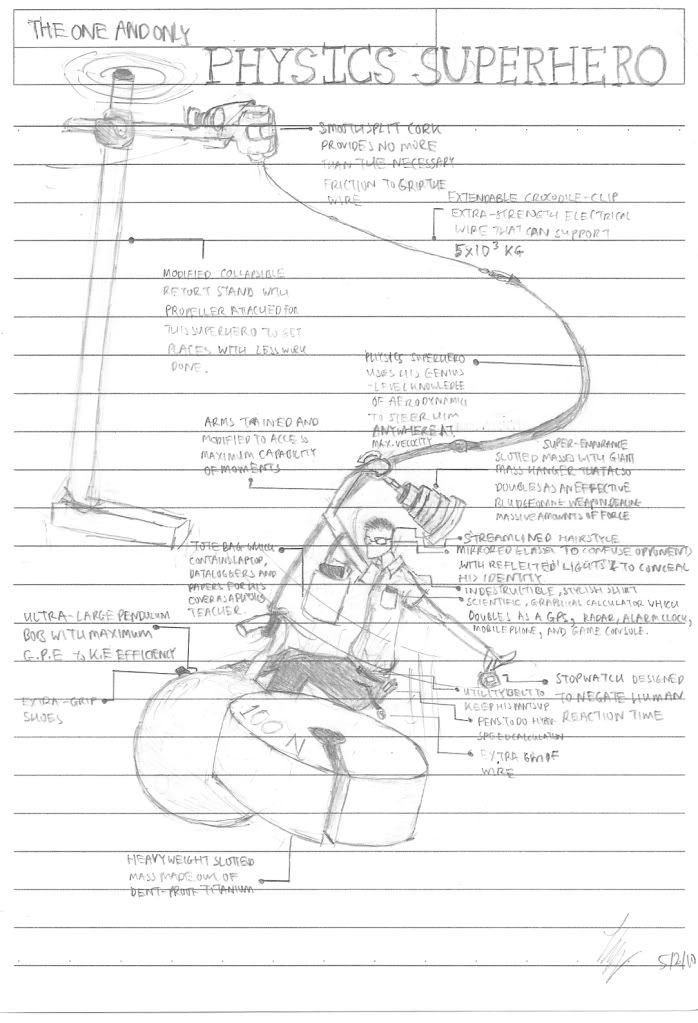 THE ONE AND ONLY
PHYSICS SUPERHERO
SMOOTH SPLIT CORK
PROVIDES NO MORE
THAN THE NECESSARY
FRICTION TO GRIP THE
WIRE
EXTENDABLE CROCODILE-CLIP
EXTRA-STRENGTH ELECTRICAL
WIRE THAT CAN SUPPORT
5x10³ KG
MODIFIED COLLAPSIBLE
RETORT STAND WITH
PROPELLER ATTACHED FOR
THIS SUPERHERO TO GET
PLACES WITH LESS WORK
DONE.
PHYSICS SUPERHERO
USES HIS GENIUS
-LEVEL KNOWLEDGE
OF AERODYNAMIC
TO STEER HIM
ANYWHERE AT
MAX. VELOCITY
ARMS TRAINED AND
MODIFIED TO ACCESS
MAXIMUM CAPABILITY
OF MOMENTS
SUPER-ENDURANCE
SLOTTED MASSES WITH GIANT
MASS HANGER THAT ALSO
DOUBLES AS AN EFFECTIVE
BLUDGEONING WEAPON DEALING
MASSIVE AMOUNTS OF FORCE
STREAMLINED HAIRSTYLE
MIRRORED GLASSES TO CONFUSE OPPONENTS
WITH REFLECTED LIGHTS & TO CONCEAL
HIS IDENTITY.
INDESTRUCTIBLE, STYLISH SHIRT
SCIENTIFIC, GRAPHICAL CALCULATOR WHICH
DOUBLES AS A GPS, RADAR, ALARM CLOCK,
MOBILE PHONE, AND GAME CONSOLE.
TOTE BAG WHICH
CONTAINS LAPTOP,
DATALOGGERS AND
PAPERS FOR HIS
COVER AS A PHYSICS
TEACHER.
ULTRA-LARGE PENDULUM
BOB WITH MAXIMUM
G.P.E to K.E EFFICIENCY
EXTRA-GRIP
SHOES
STOPWATCH DESIGNED
TO NEGATE HUMAN
REACTION TIME
UTILITY BELT TO
KEEP HIS PANTS UP
PENS TO DO HYPER
SPEED CALCULATION
EXTRA
WIRE
100 N
HEAVYWEIGHT SLOTTED
MASS MADE OUT OF
DENT-PROOF TITANIUM
5/2/10